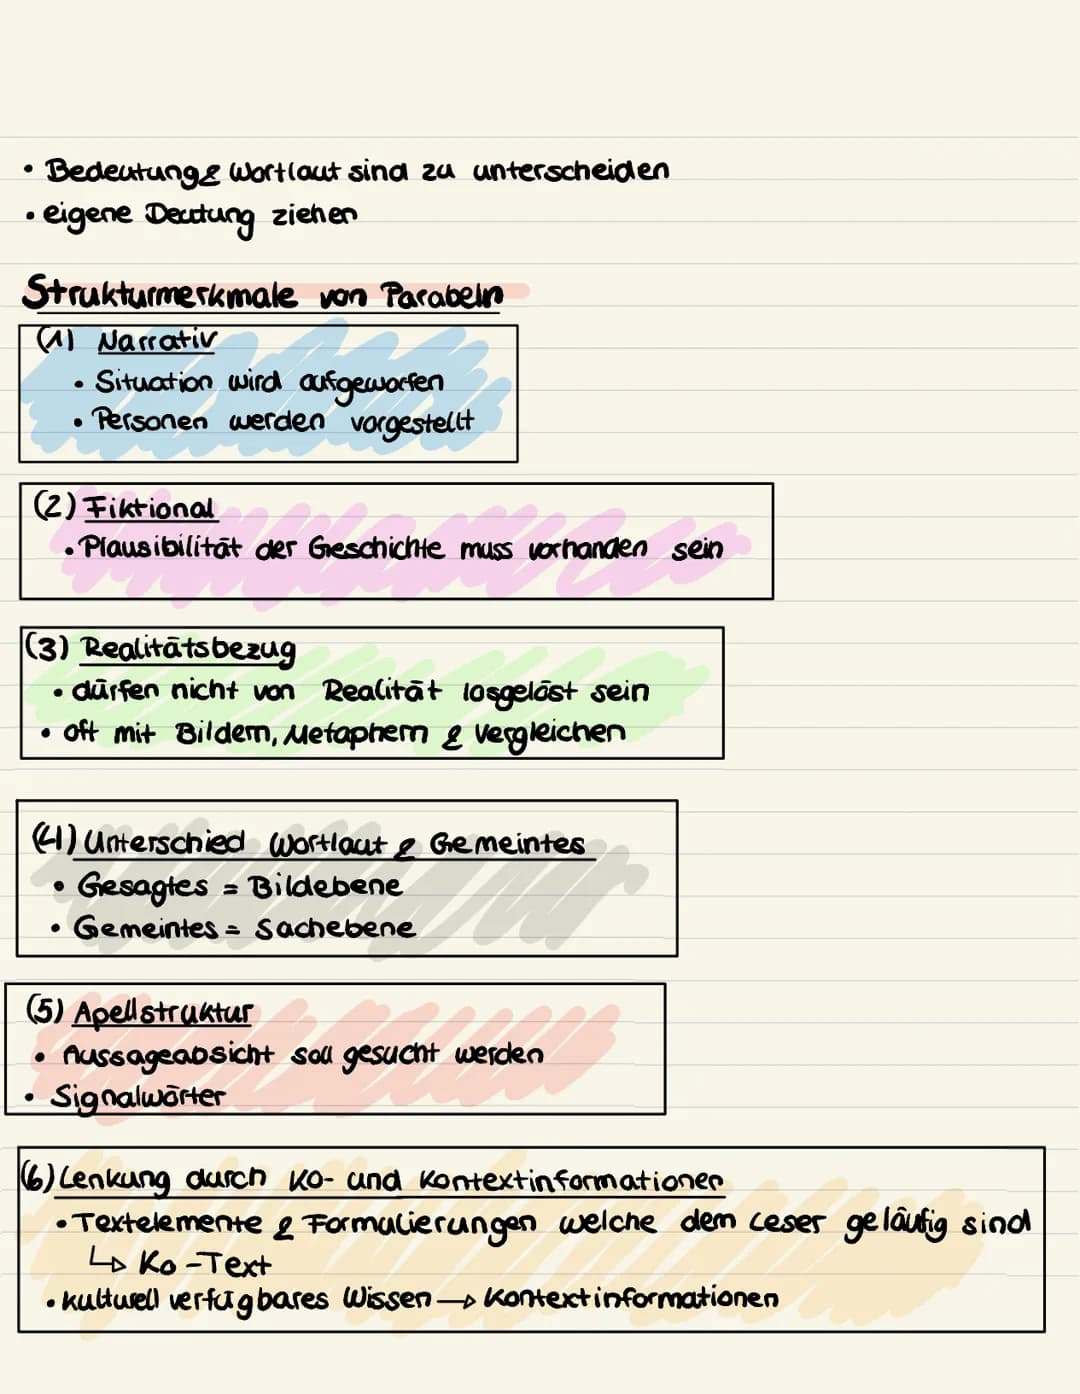 • Bedeutung & Wortlaut sind zu unterscheiden
• eigene Deutung ziehen
Strukturmerkmale von Parabeln
(1) Narrativ
• Situation wird aufgeworfen
• Personen werden vorgestellt
(2) Fiktional
• Plausibilität der Geschichte muss vorhanden sein
(3) Realitätsbezug
• dürfen nicht von Realität losgelöst sein
• oft mit Bildern, Metaphern & Vergleichen
(4) Unterschied Wortlaut & Gemeintes
• Gesagtes = Bildebene
• Gemeintes = Sachebene
(5) Apellstruktur
• Aussageabsicht soll gesucht werden
• Signalwörter
(6) Lenkung durch Ko- und Kontextinformationen
• Textelemente & Formulierungen welche dem Leser geläufig sind
↳ Ko-Text
• kulturell verfügbares Wissen → Kontextinformationen